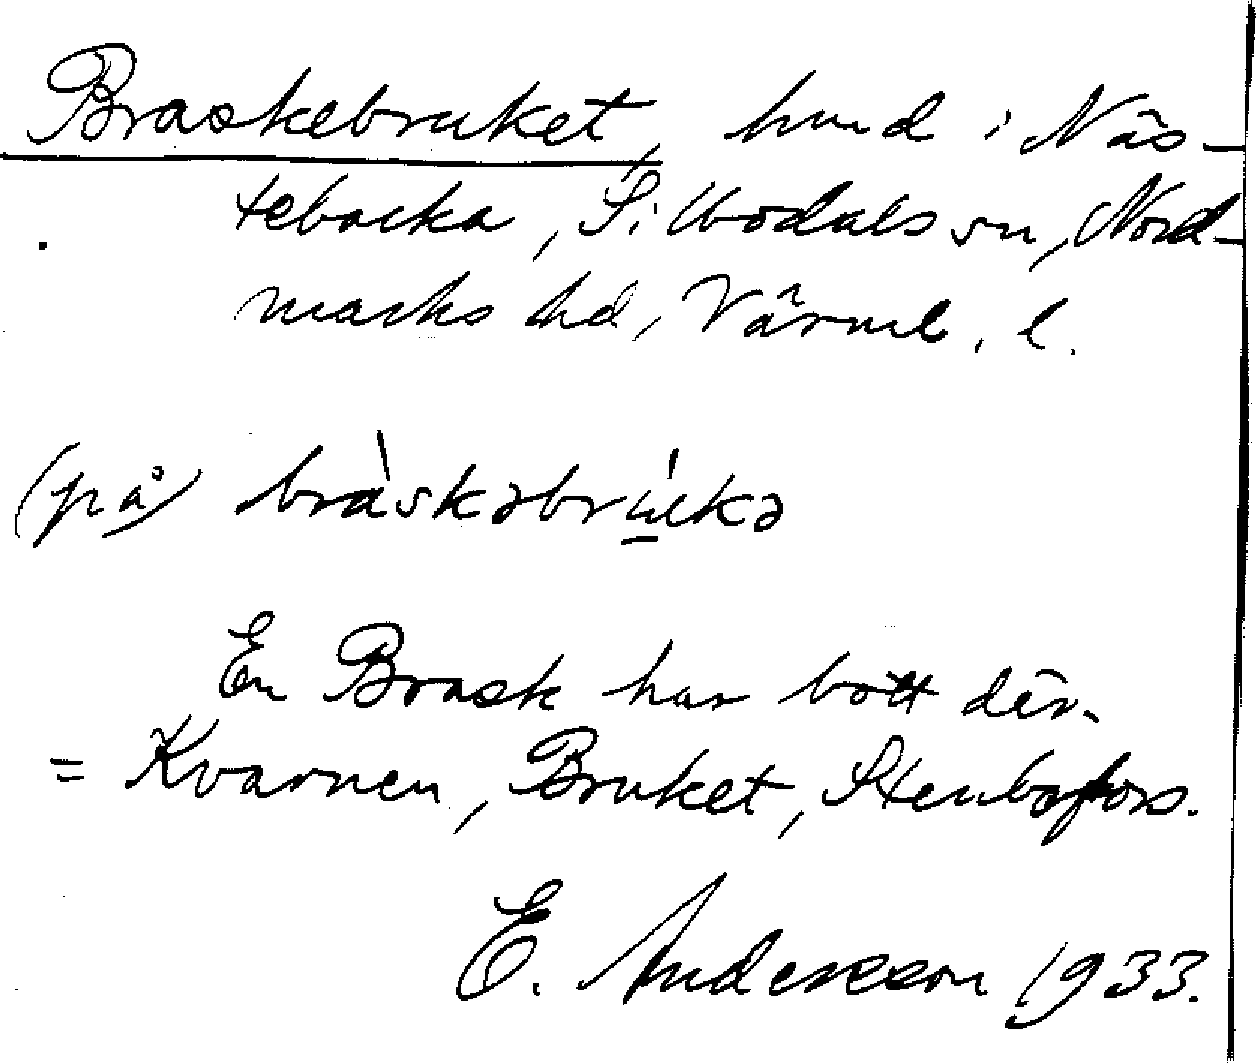 Braskebruket, hmd i Näs-
tebacka, Sillbodals sn, Nord-
marks hd, Värml. l.
(på) bràskəbru̲̍kə
En Brask har bott där.
= Kvarnen, Bruket, Stenbofors.
E. Andersson 1933.